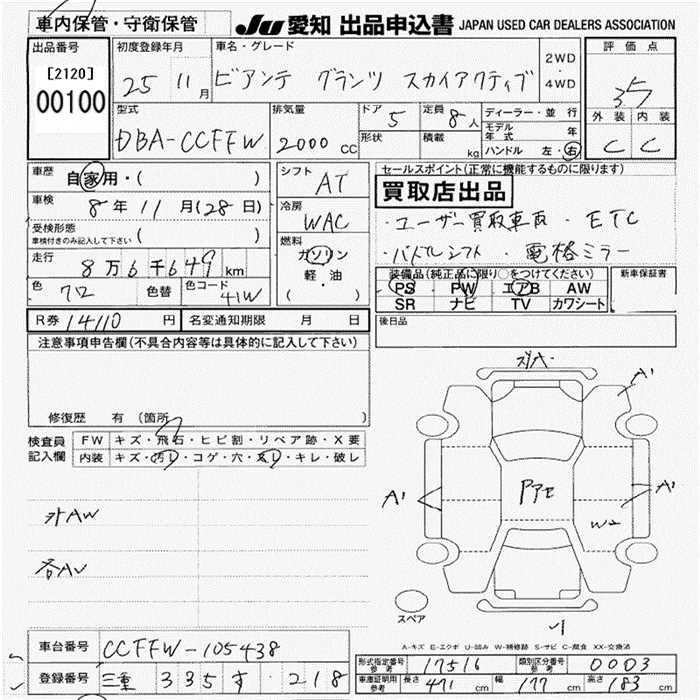 車内保管・守衛保管
JU 愛知 出品申込書 JAPAN USED CAR DEALERS ASSOCIATION
出品番号
[2120]
00100
初度登録年月 車名・グレード
25 11月 ビアンテ グランツ スカイアクティブ
2WD
・
4WD
評価点
3.5
外装 内装
C C
型式 排気量 ドア 5 定員 8人
DBA-CCFFW 2000 CC 形状 積載 kg
ディーラー・並行
モデル年式 年
ハンドル 左・右
車歴 自家用・( )
車検 8年11月(28日)
受検形態
車検付きのみ記入して下さい ( )
走行 8万6千649km
色 クロ 色替 色コード 41W
シフト AT
冷房 WAC
燃料
ガソリン
軽・油
( )
セールスポイント(正常に機能するものに限ります)
買取店出品
・ユーザー買取車両 ・ETC
・パドルシフト ・電格ミラー
装備品(純正品に限り○をつけてください) 新車保証書
PS PW エアB AW
SR ナビ TV カワシート
後日品
R券 14110円 名変通知期限 月 日
注意事項申告欄(不具合内容等は具体的に記入して下さい)
修復歴 有(箇所 )
検査員記入欄
FW キズ・飛石・ヒビ割・リペア跡・X要
内装 キズ・汚レ・コゲ・穴・スレ・キレ・破レ
外AW
A'
A'
A'
W2
スペア
A-キズ E-エクボ U-凹み W-補修跡 S-サビ C-腐食 XX-交換済
車台番号 CCFFW-105438
登録番号 三重 335 す ・218
形式指定番号 参考 17516 類別区分番号 参考 0003
車庫証明用 参考 長さ 471cm 幅 177cm 高さ 183cm